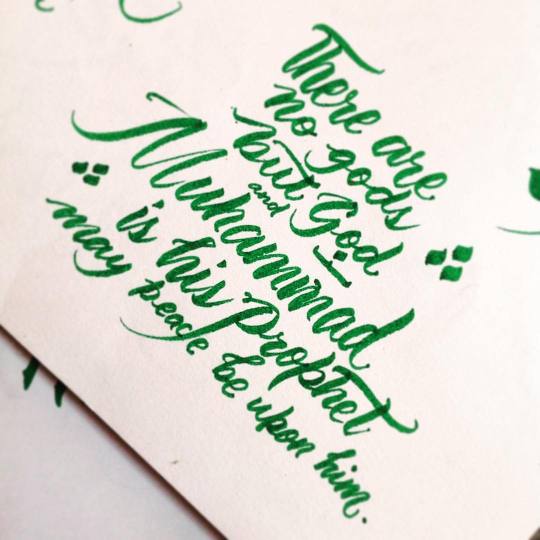 There are
no gods
but God
and
Muhammad
is his Prophet
may peace be upon him.